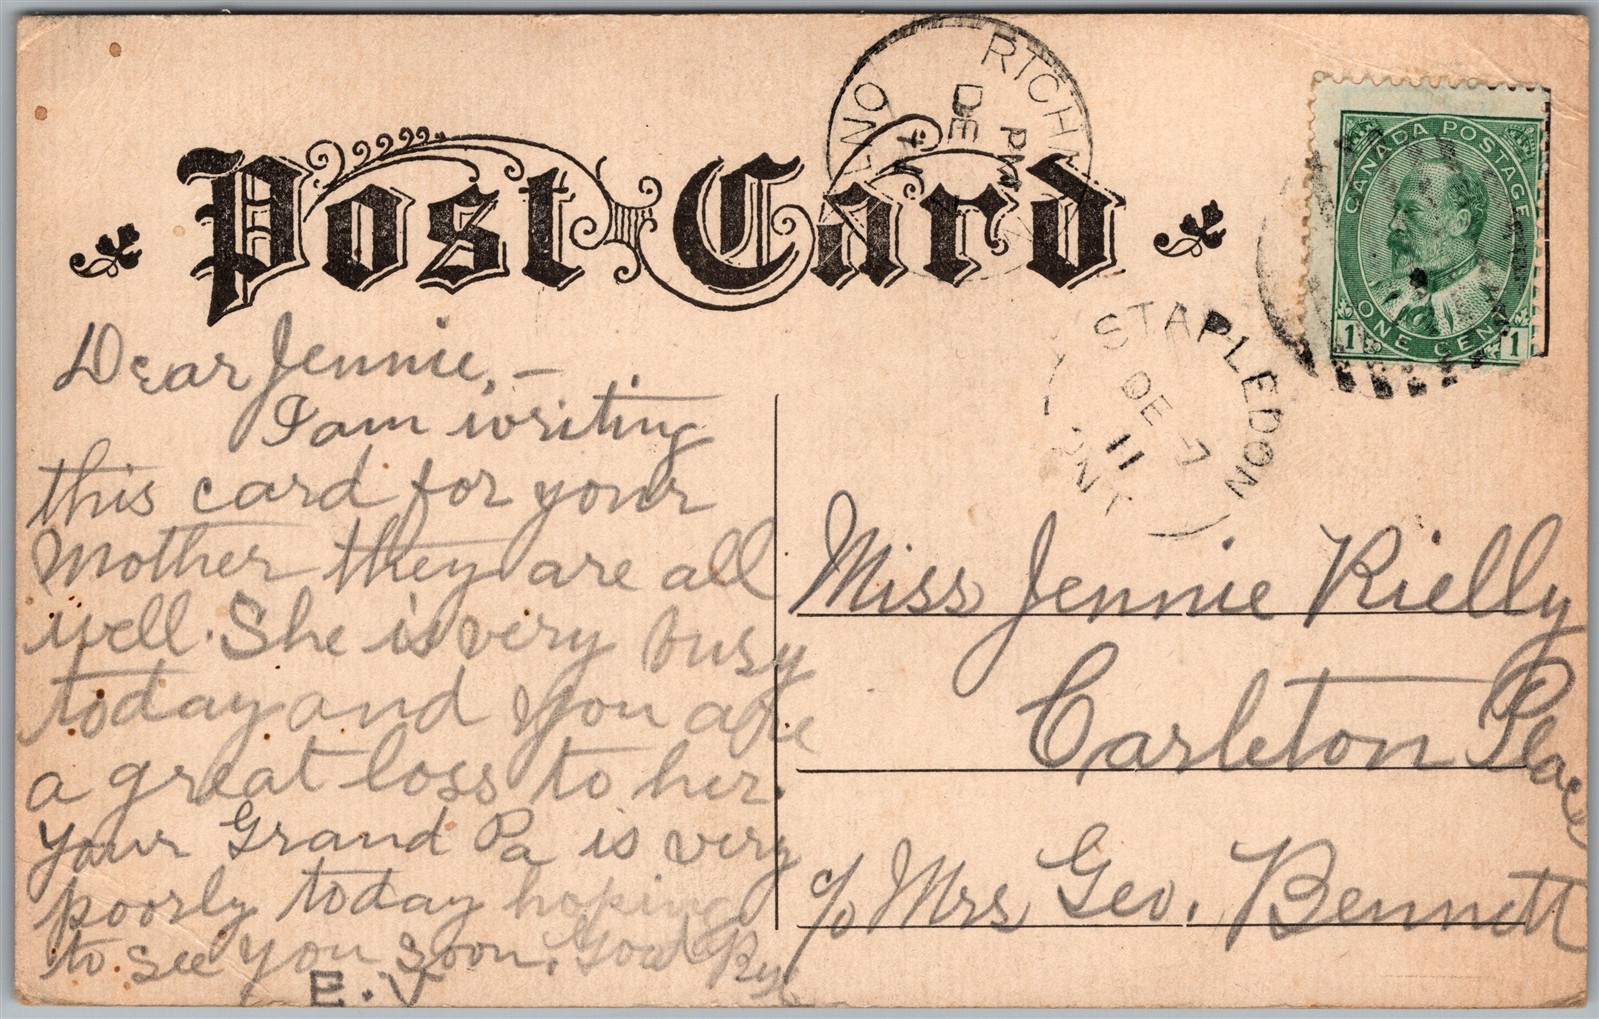 Post Card
RICHM
ONT
PM
DE
STAPLEDON
DE 7
11
ONT
CANADA POSTAGE
1 ONE CENT 1
Dear Jennie, -
I am writing
this card for your
Mother they are all
well. She is very busy
today and you are
a great loss to her.
Your Grand Pa is very
poorly today hoping
to see you soon. Good Bye
E. V
Miss Jennie Rielly
Carleton Place
c/o Mrs Geo. Bennett